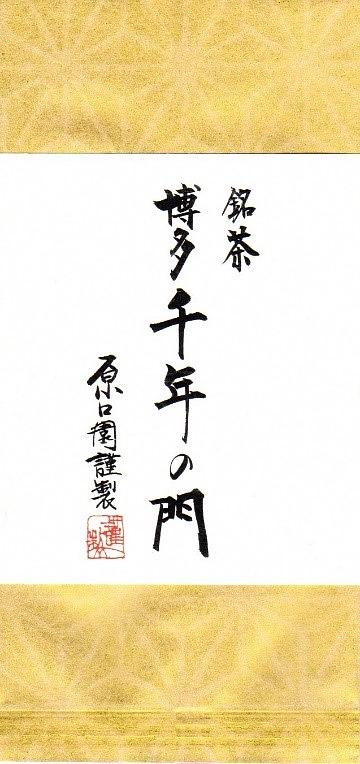 銘茶
博多千年の門
原口園謹製
謹製